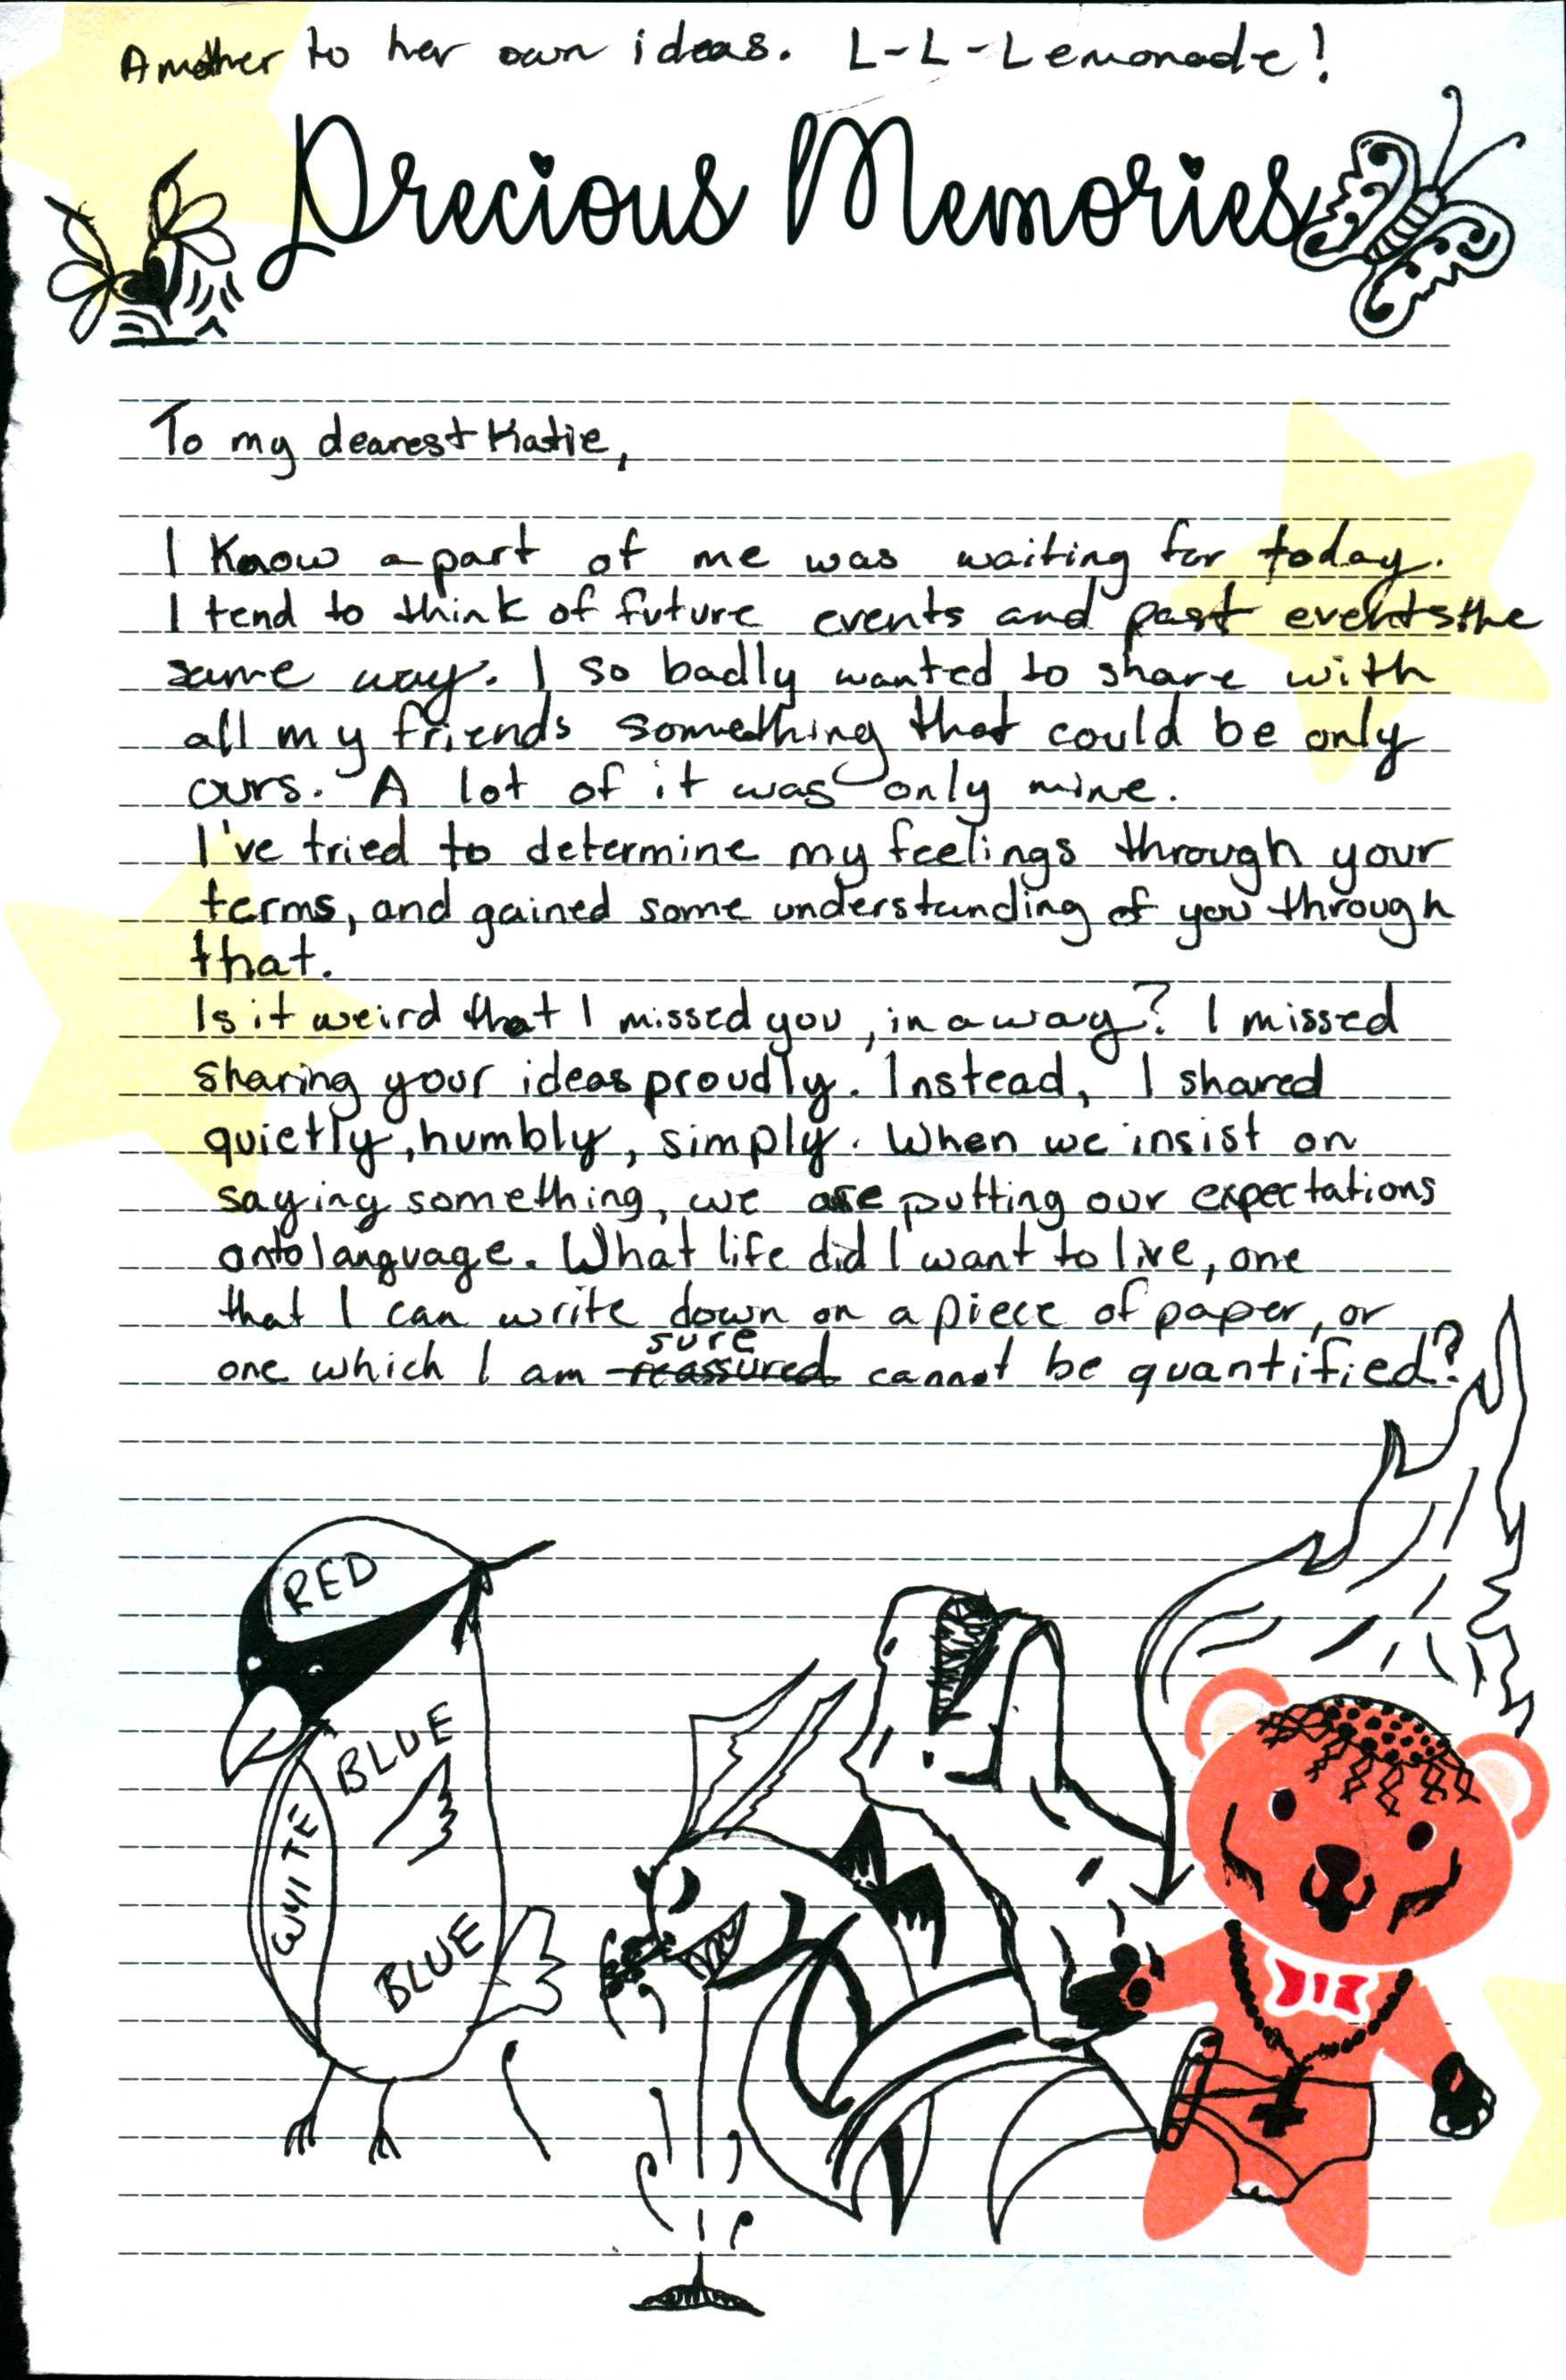 A mother to her own ideas. L-L-Lemonade!
Precious Memories
To my dearest Katie,
I know a part of me was waiting for today.
I tend to think of future events and past events the
same way. I so badly wanted to share with
all my friends something that could be only
ours. A lot of it was only mine.
I've tried to determine my feelings through your
terms, and gained some understanding of you through
that.
Is it weird that I missed you, in a way? I missed
sharing your ideas proudly. Instead, I shared
quietly, humbly, simply. When we insist on
saying something, we are putting our expectations
onto language. What life did I want to live, one
that I can write down on a piece of paper, or
sure
one which I am reassured cannot be quantified?
RED
BLUE
WHITE
BLUE